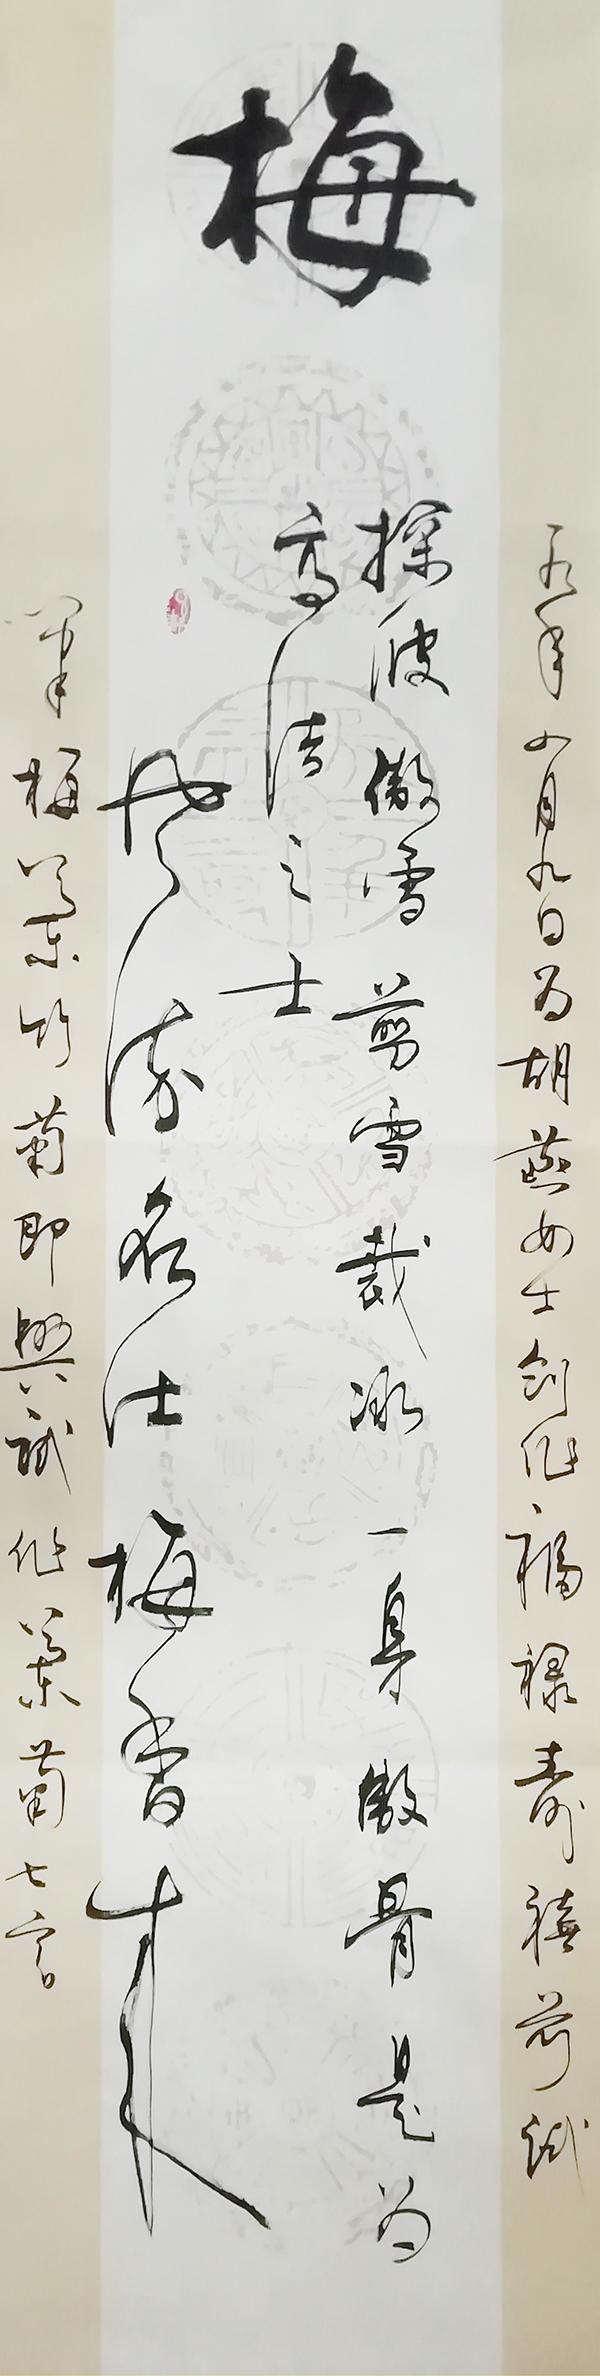 梅
年四月九日为胡燕女士创作福禄寿禧前试
探波傲雪剪雪裁冰一身傲骨是为
高洁之士
名仕梅香来
笔梅兰竹菊即興试作兰菊七言